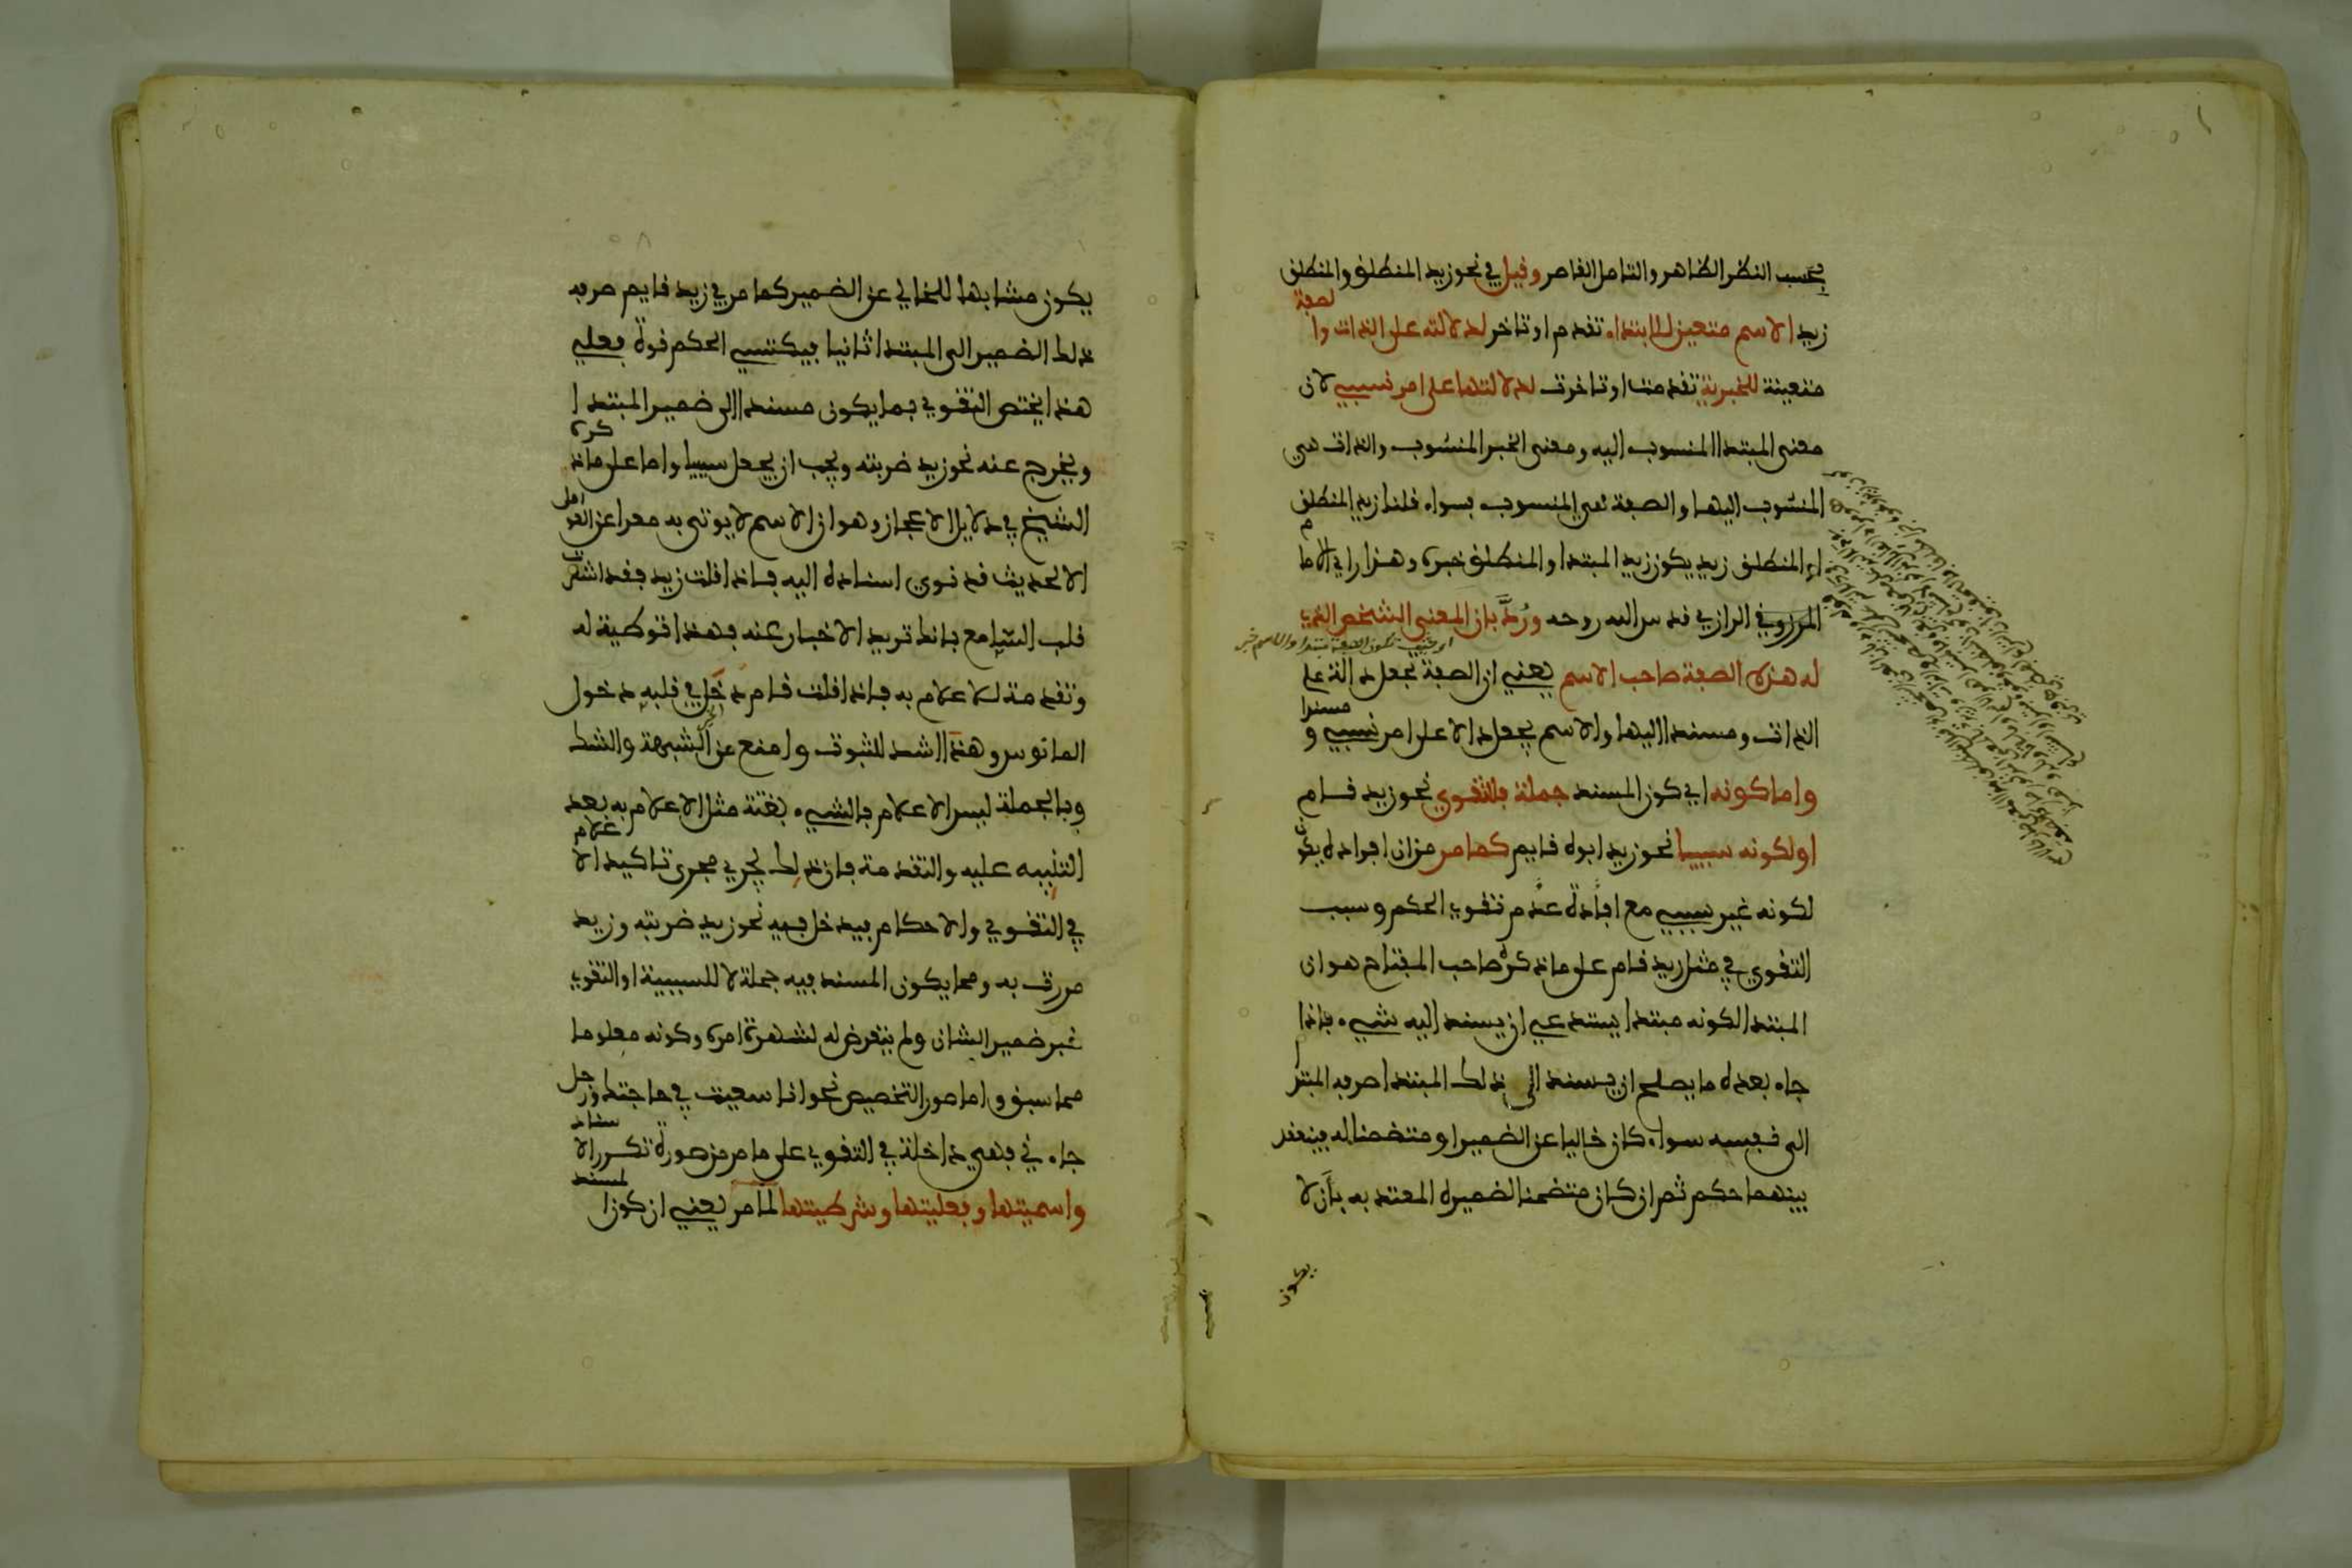 بحسب النظر الظاهر والتامل القاصر وقيل في نحو زيد المنطلق والمنطلق
زيد الاسم متعين للابتداء تقدم او تاخر لدلالته على الذات والصفة
متعينة للخبرية تقدمت او تاخرت لدلالتها على امر نسبي لان
معنى المبتدا المنسوب اليه ومعنى الخبر المنسوب والذات هي
المنسوب اليها والصفة هي المنسوب فسواء قلنا زيد المنطلق
او المنطلق زيد يكون زيد المبتدا والمنطلق خبره وهذا راي الامام
الرازي قدس الله روحه ورُدَّ بان المعنى الشخص الذي
له هذه الصفة صاحب الاسم يعني ان الصفة تجعل دالة على
الذات ومسندا اليها والاسم يجعل دالا على امر نسبي ومسندا
واما كونه اي كون المسند جملة فللتقوي نحو زيد قام
او لكونه سببيا نحو زيد ابوه قايم كما مر من ان افراده يكون
لكونه غير سببي مع افادة عدم تقوي الحكم وسبب
التقوي في مثل زيد قام على ما ذكره صاحب المفتاح هو ان
المبتدا لكونه مبتدا يستدعي ان يسند اليه شيء فاذا
جاء بعده ما يصلح ان يسند الى ذلك المبتدا صرفه المبتدا
الى نفسه سواء كان خاليا عن الضمير او متضمنا له فينعقد
بينهما حكم ثم ان كان متضمنا لضميره المعتد به بان لا
يكون
يكون مشابها للخالي عن الضمير كما مر في زيد قايم صرفه
ذلك الضمير الى المبتدا ثانيا فيكتسي الحكم قوة فعلى
هذا يختص التقوي بما يكون مسندا الى ضمير المبتدا
ويخرج عنه نحو زيد ضربته ويجب ان يجعل سببيا واما على ما ذكره
الشيخ في دلايل الاعجاز وهو ان الاسم لا يوتى به معرا عن العوامل
الا لحديث قد نوي اسناده اليه فاذا قلت زيد فقد اشعرت
قلب السامع بانك تريد الاخبار عنه فهذا توطية له
وتقدمة للاعلام به فاذا قلت قام دخل في قلبه دخول
المانوس وهذا اشد للثبوت وامنع عن الشبهة والشك
وبالجملة ليس الاعلام بالشيء بغتة مثل الاعلام به بعد
التنبيه عليه والتقدمة فان ذلك يجري مجرى تاكيد الاعلام
في التقوي والاحكام فيدخل فيه نحو زيد ضربته وزيد
مررت به ومما يكون المسند فيه جملة لا للسببية او التقوي
خبر ضمير الشان ولم يتعرض له لشهرة امره وكونه معلوما
مما سبق واما صور التخصيص نحو انا سعيت في حاجتك ورجل
جاءني فهي داخلة في التقوي على ما مر من صورة تكرر الاسناد
واسميتها وفعليتها وشرطيتها لما مر يعني ان كون المسند